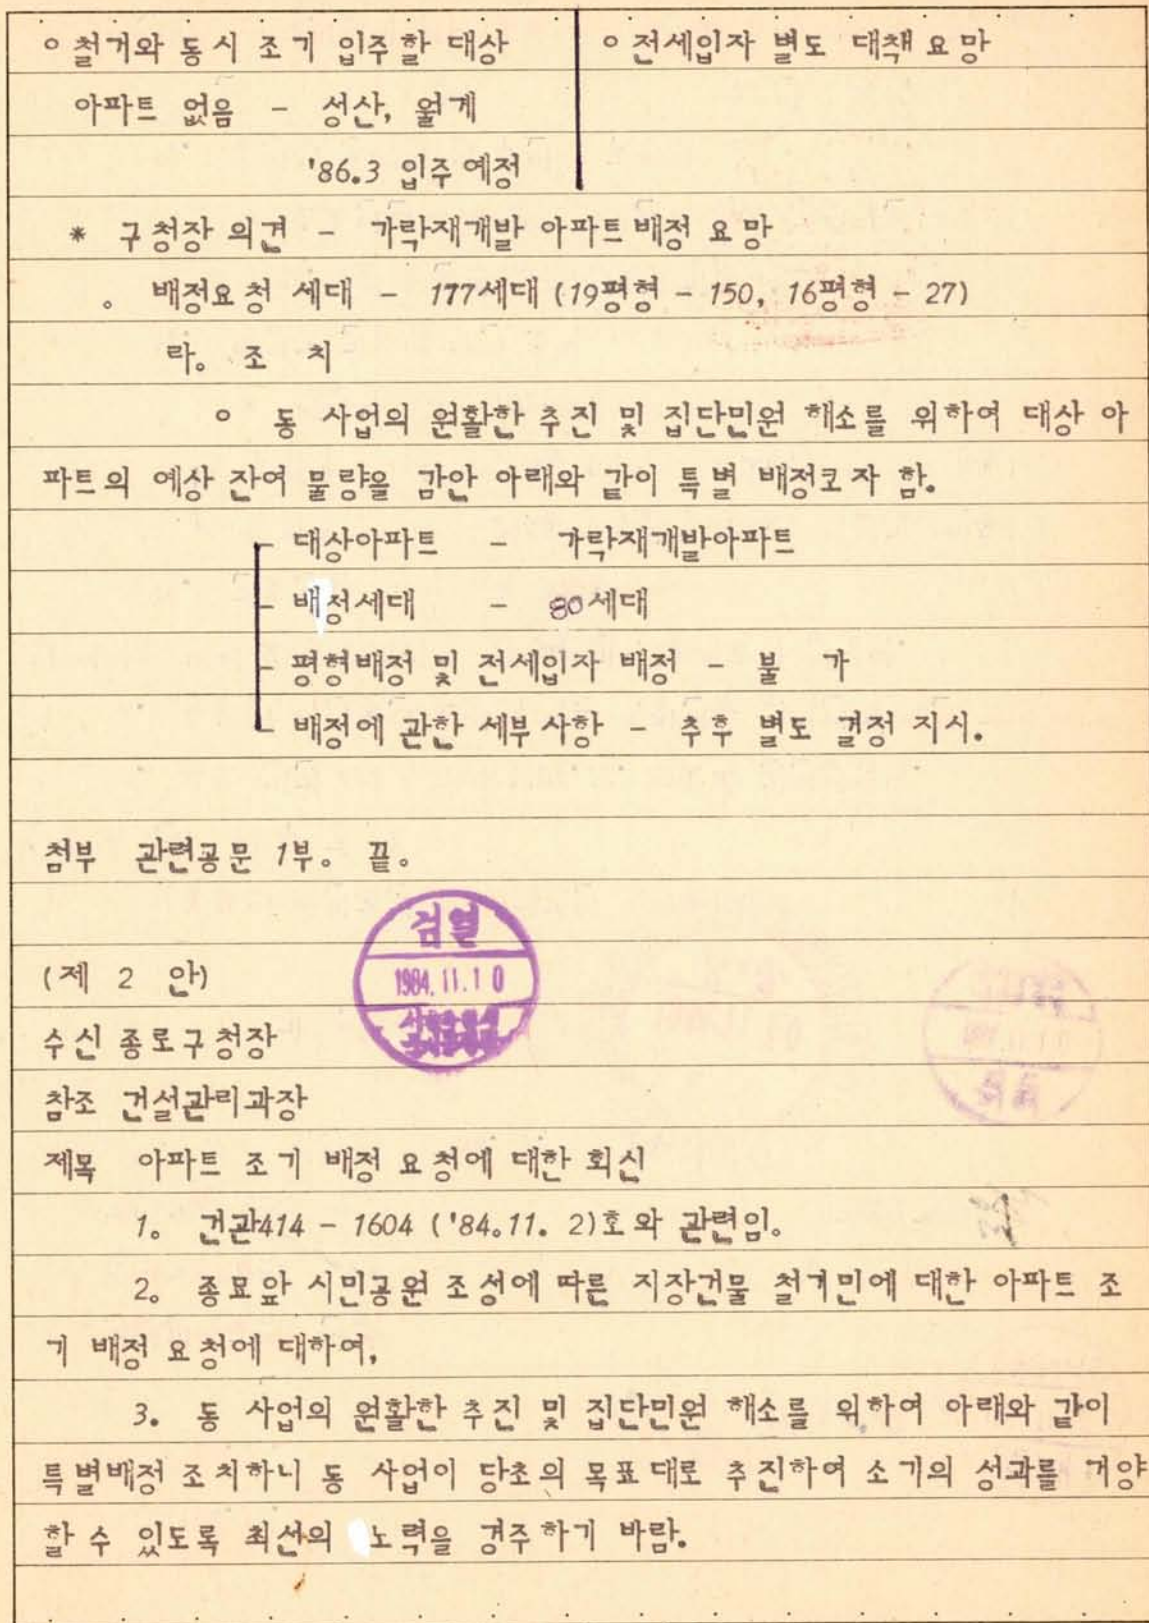 ○ 철거와 동시 조기 입주할 대상
아파트 없음 - 성산, 월계
'86.3 입주 예정
○ 전세입자 별도 대책 요망
* 구청장 의견 - 가락재개발 아파트 배정 요망
○ 배정요청 세대 - 177세대 (19평형 - 150, 16평형 - 27)
라. 조 치
○ 동 사업의 원활한 추진 및 집단민원 해소를 위하여 대상 아
파트의 예상 잔여 물량을 감안 아래와 같이 특별 배정코자 함.
- 대상아파트 - 가락재개발아파트
- 배정세대 - 80세대
- 평형배정 및 전세입자 배정 - 불 가
- 배정에 관한 세부사항 - 추후 별도 결정 지시.
첨부 관련공문 1부. 끝.
검열
1984.11.10
(제 2 안)
수신 종로구청장
참조 건설관리과장
제목 아파트 조기 배정 요청에 대한 회신
1. 건관414 - 1604 ('84.11. 2)호와 관련임.
2. 종묘앞 시민공원 조성에 따른 지장건물 철거민에 대한 아파트 조
기 배정 요청에 대하여,
3. 동 사업의 원활한 추진 및 집단민원 해소를 위하여 아래와 같이
특별배정 조치하니 동 사업이 당초의 목표대로 추진하여 소기의 성과를 거양
할 수 있도록 최선의 노력을 경주하기 바람.